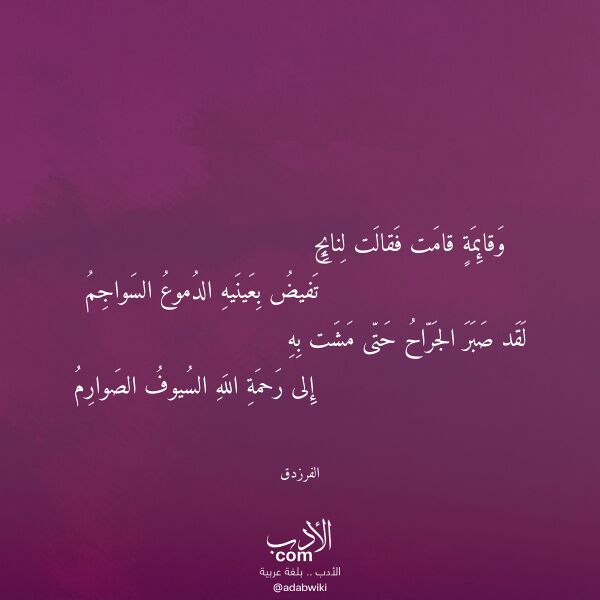 وَقائِمَةٍ قامَت فَقالَت لِنائِحٍ
تَفيضُ بِعَينَيهِ الدُموعُ السَواجِمُ
لَقَد صَبَرَ الجَرّاحُ حَتّى مَشَت بِهِ
إِلى رَحمَةِ اللَهِ السُيوفُ الصَوارِمُ
الفرزدق
الأدب
com
الأدب .. بلغة عربية
@adabwiki